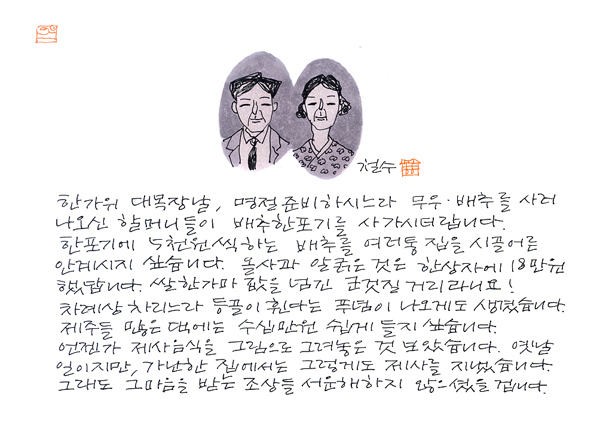 철수
한가위 대목장날, 명절 준비하시느라 무우·배추를 사러
나오신 할머니들이 배추한포기를 사가시더랍니다.
한포기에 5천원씩하는 배추를 여러통 집을 시골어른
안계시지 싶습니다. 몇사과 알굵은 것은 한상자에 18만원
했답니다. 쌀한가마 값을 넘긴 군것질 거리라니요!
차례상 차리느라 등골이 휜다는 푸념이 나오게도 생겼습니다.
제주들 많은 댁에는 수십만원 쉽게 들지 싶습니다.
언젠가 제사음식을 그림으로 그려놓은 것 보았습니다. 옛날
일이지만, 가난한 집에서는 그렇게도 제사를 지냈습니다.
그래도 그마음을 받는 조상들 서운해하지 않으셨을 겁니다.